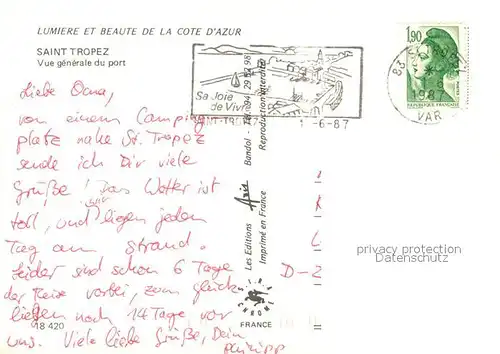 LUMIERE ET BEAUTE DE LA COTE D'AZUR
SAINT TROPEZ
Vue générale du port
Sa Joie
de Vivre
1-6-87
1,90
REPUBLIQUE FRANÇAISE
83
VAR
Liebe Oma,
von einem Camping
platz nahe St. Tropez
sende ich Dir viele
Grüße! Das Wetter ist
toll, und wir liegen jeden
Tag am Strand.
Leider sind schon 6 Tage
der Reise vorbei, zum Glück
liegen noch 14 Tage vor
uns. Viele liebe Grüße, Dein
Philipp
18 420
Les Editions Aris Bandol
Imprimé en France
Reproduction interdite
FRANCE
D-2
privacy protection
Datenschutz